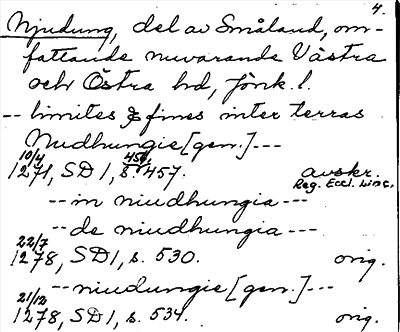 4.
Njudung, del av Småland, om-
fattande nuvarande Västra
och Östra hd, Jönk. l.
-- limites & fines inter terras
Nudhungie [gen.] ---
10/4 1271, SD 1, s. 456, 457. avskr. Reg. Eccl. Linc.
-- in niudhungia ---
-- de niudhungia ---
22/7 1278, SD 1, s. 530. orig.
-- niudungie [gen.] ---
21/12 1278, SD 1, s. 534. orig.